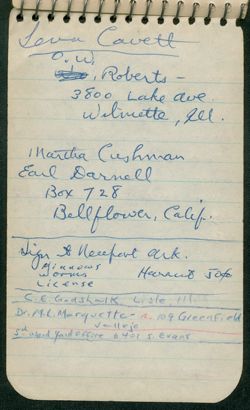 Cavett
O.W.
Roberts -
3800 Lake Ave.
Wilmette, Ill.
Martha Cushman
Earl Darnell
Box 728
Bellflower, Calif.
Sign to Newport Ark.
Minnows
Worms
License
C.E. Godshalk Lisle, Ill.
Dr. M.L. Marquette - R. 109 Greenfield
Vallejo
office 6401 S. Evans